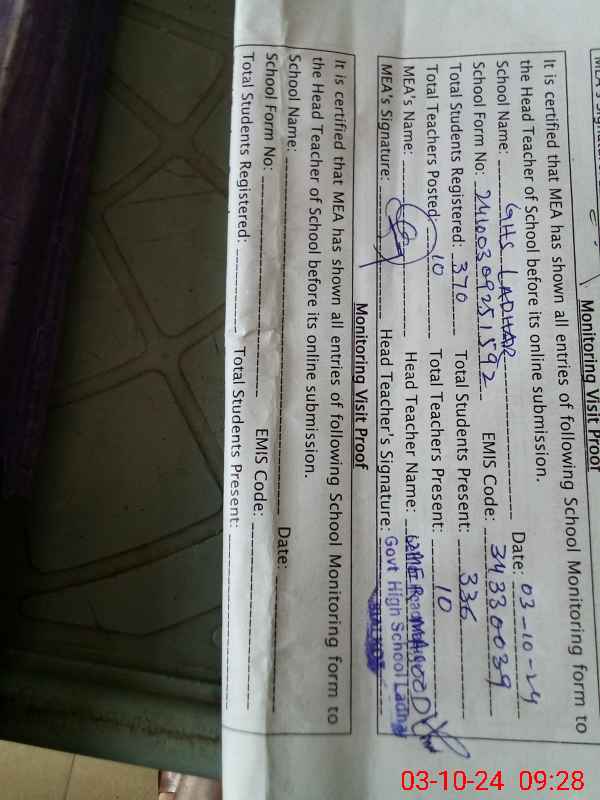 Monitoring Visit Proof
It is certified that MEA has shown all entries of following School Monitoring form to
the Head Teacher of School before its online submission.
School Name: GHS LADHAR Date: 03-10-24
School Form No: EMIS Code: 34330039
Total Students Registered: 370 Total Students Present: 336
Total Teachers Posted: 10 Total Teachers Present: 10
MEA's Name: Head Teacher Name:
MEA's Signature: Head Teacher's Signature: Govt High School
Monitoring Visit Proof
It is certified that MEA has shown all entries of following School Monitoring form to
the Head Teacher of School before its online submission.
School Name: Date:
School Form No: EMIS Code:
Total Students Registered: Total Students Present:
03-10-24 09:28